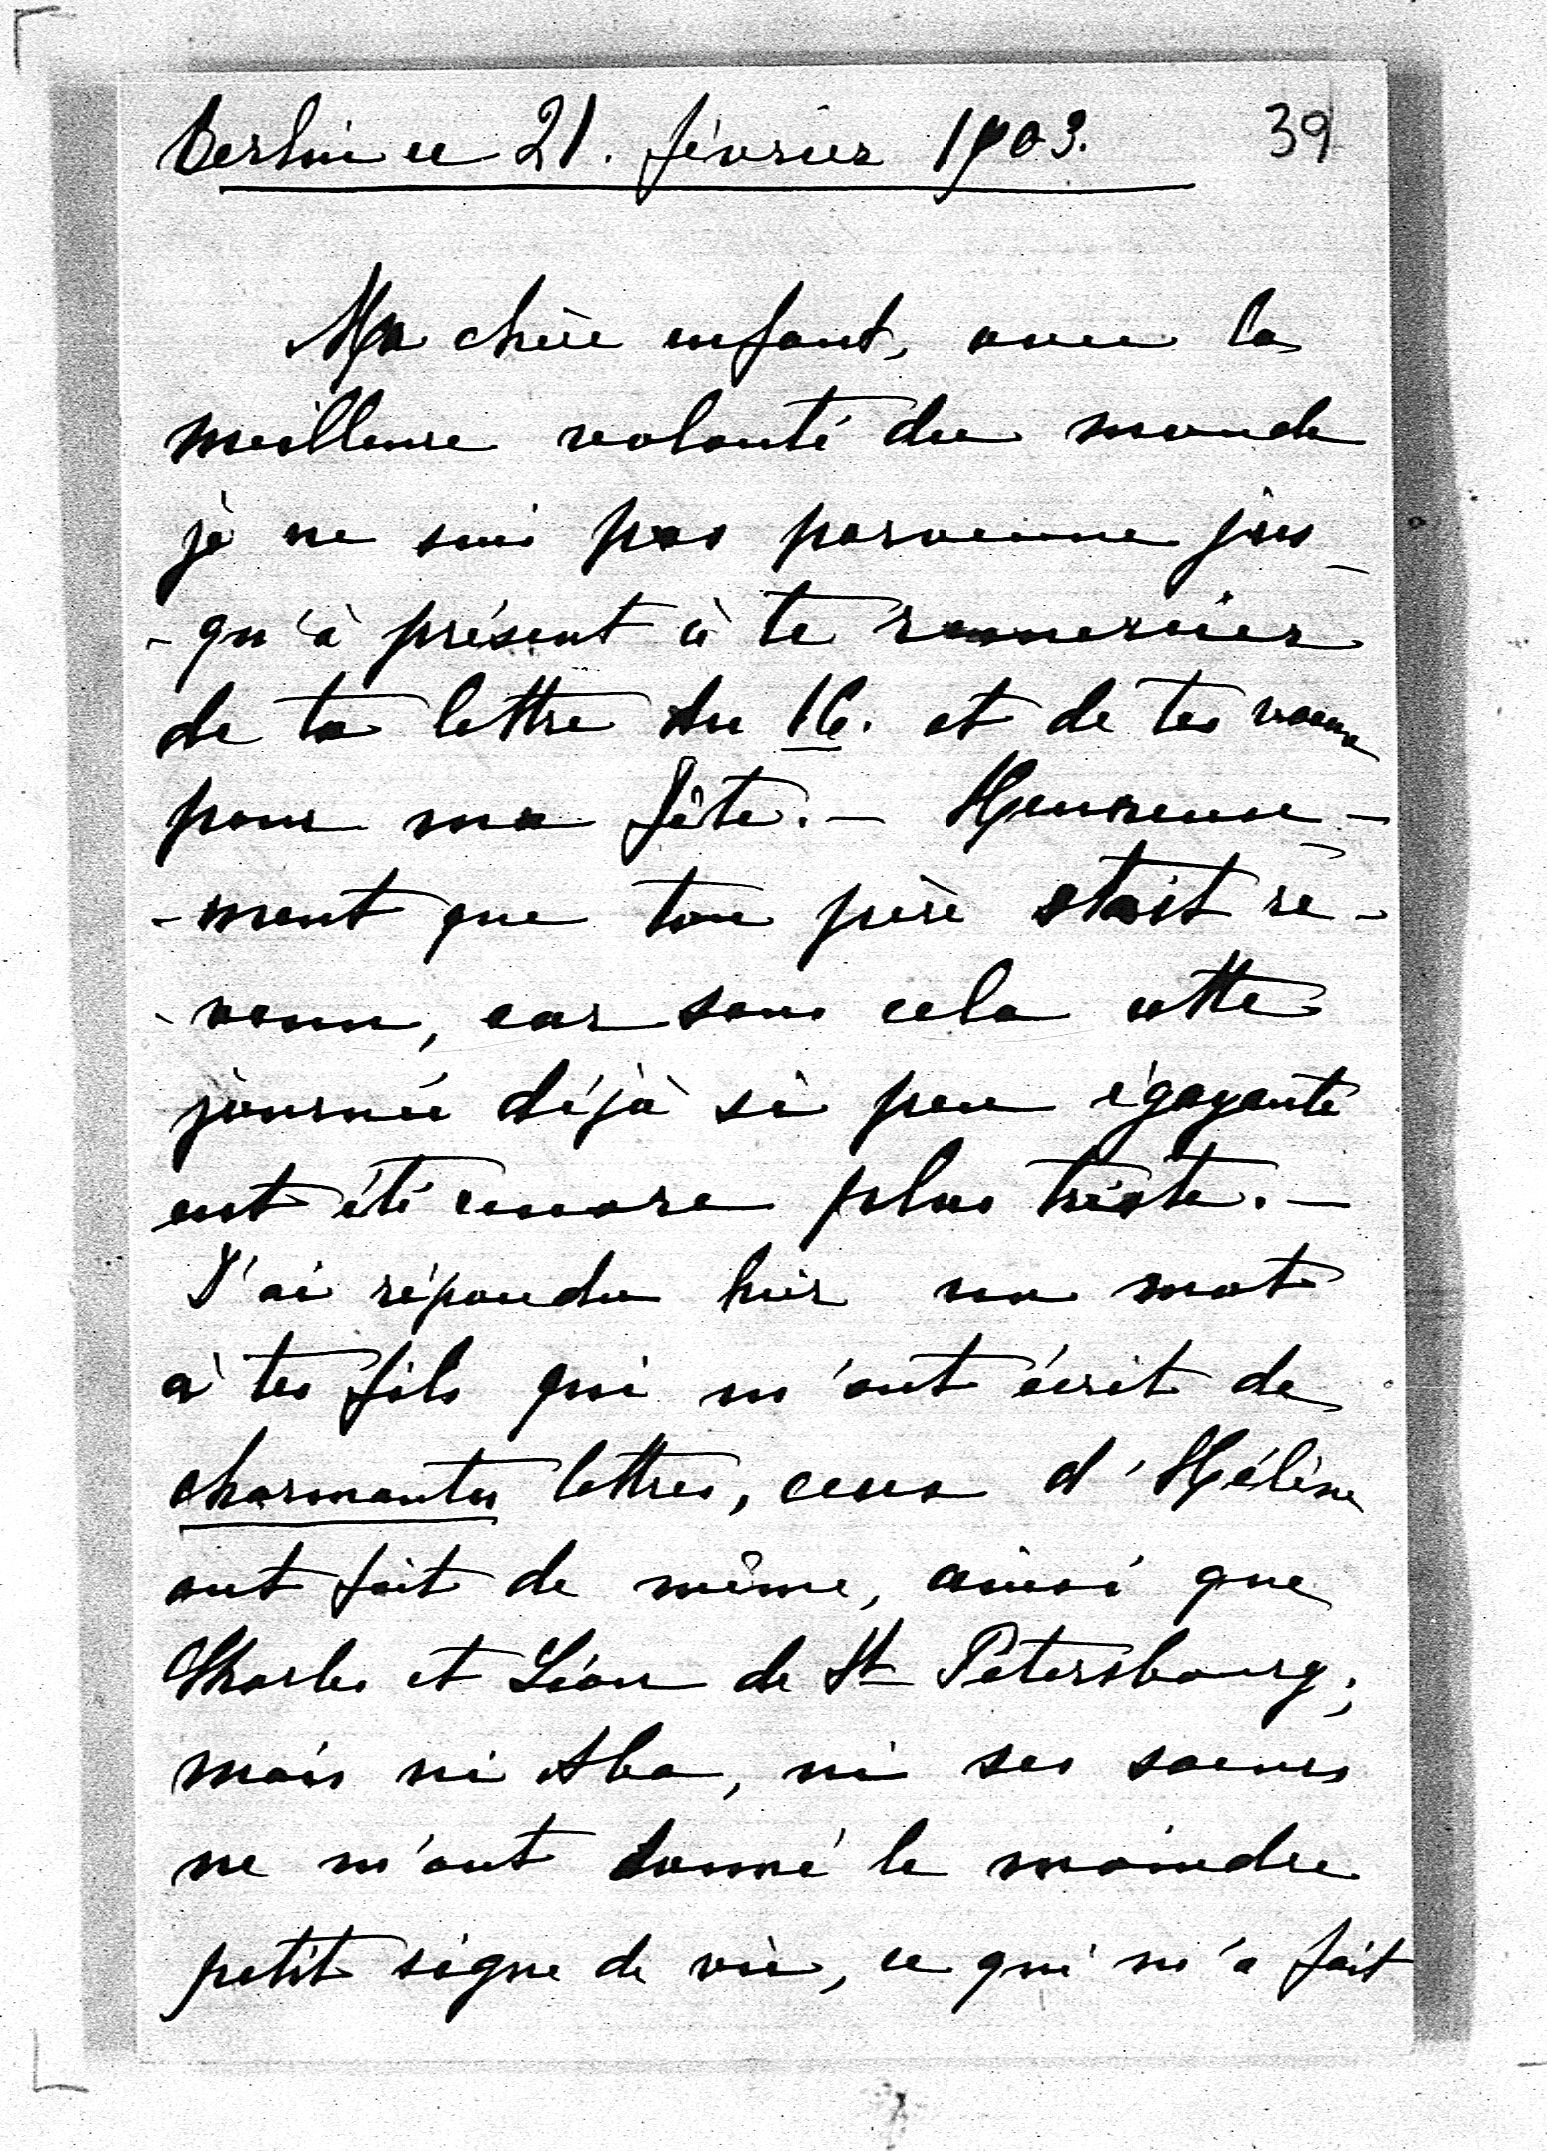 Berlin ce 21. février 1903. 39
Ma chère enfant, avec la
meilleure volonté du monde
je ne suis pas parvenue jus-
-qu'à présent à te remercier
de ta lettre du 16. et de tes voeux
pour ma fête. — Heureuse-
-ment que ton père était re-
-venu, car sans cela cette
journée déjà si peu égayante
eut été encore plus triste. —
J'ai répondu hier un mot
à tes fils qui m'ont écrit de
charmantes lettres, ceux d'Hélène
ont fait de même, ainsi que
Charles et Léon de St Petersbourg;
mais ni Aba, ni ses soeurs
ne m'ont donné le moindre
petit signe de vie, ce qui m'a fait